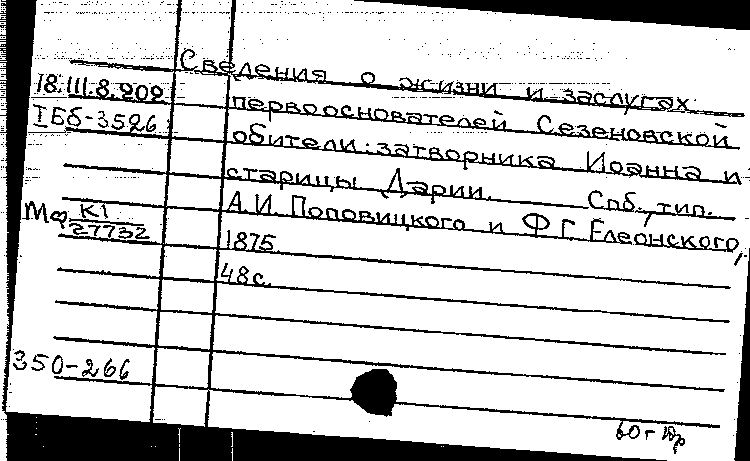 Сведения о жизни и заслугах
18.III.8.202
первооснователей Сезеновской
IБб-3526
обители: затворника Иоанна и
старицы Дарии. Спб., тип.
Мф К1
27732
А.И. Поповицкого и Ф.Г. Елеонского,
1875
48с.
350-266
60г